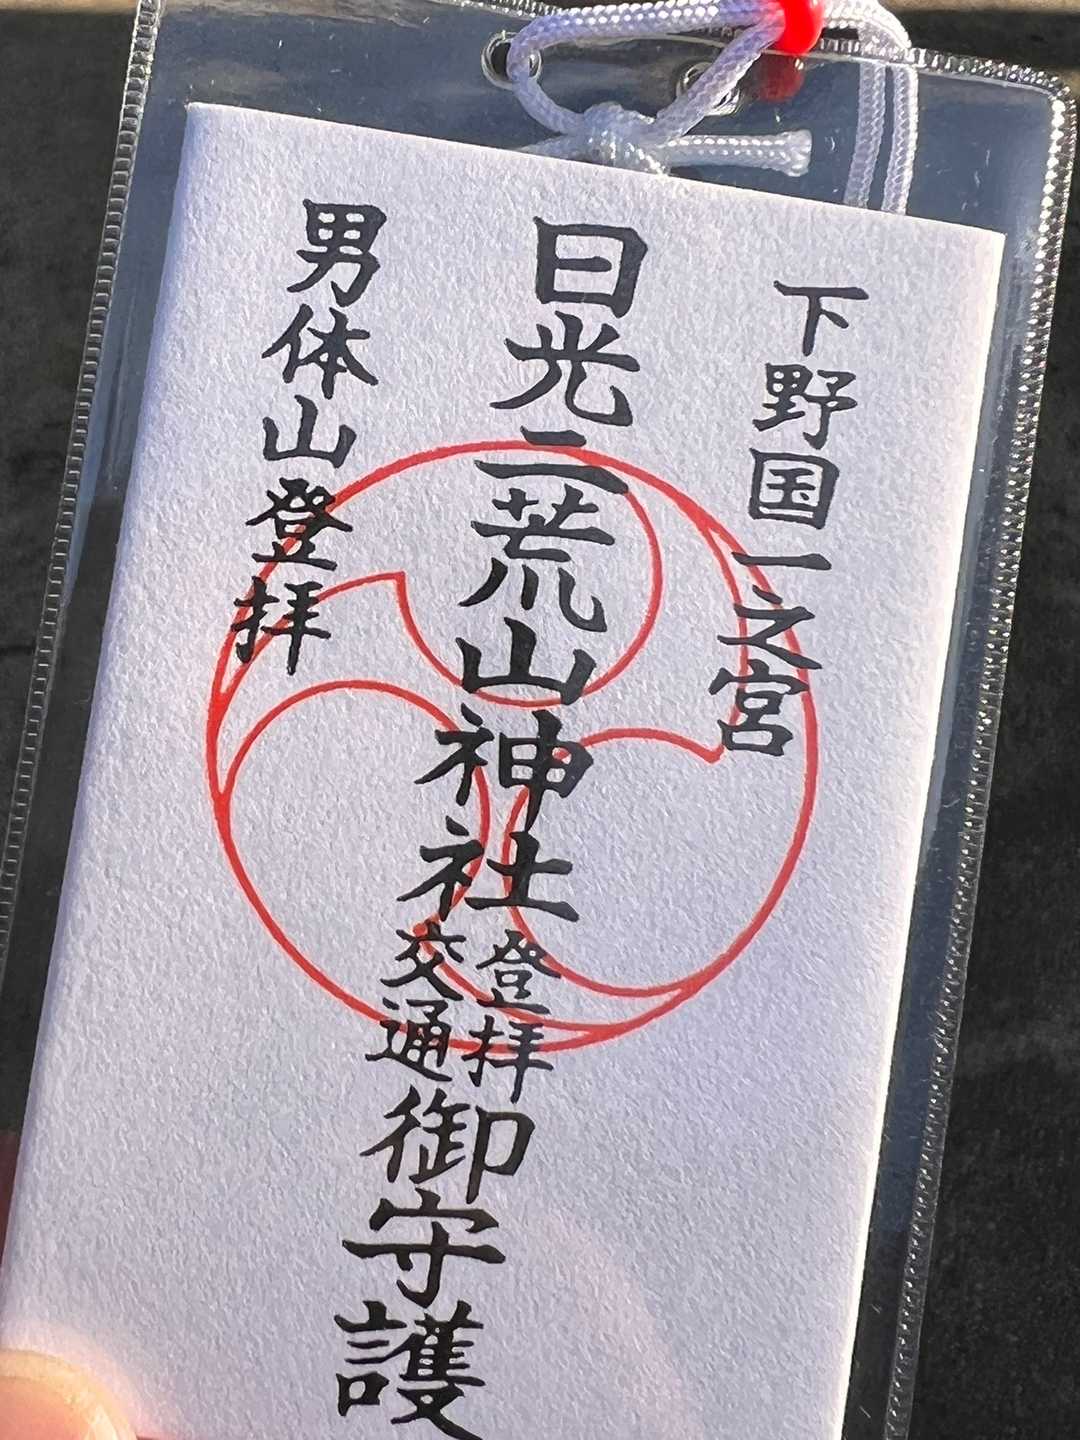 下野国一之宮
日光二荒山神社
登拝
交通
御守護
男体山登拝